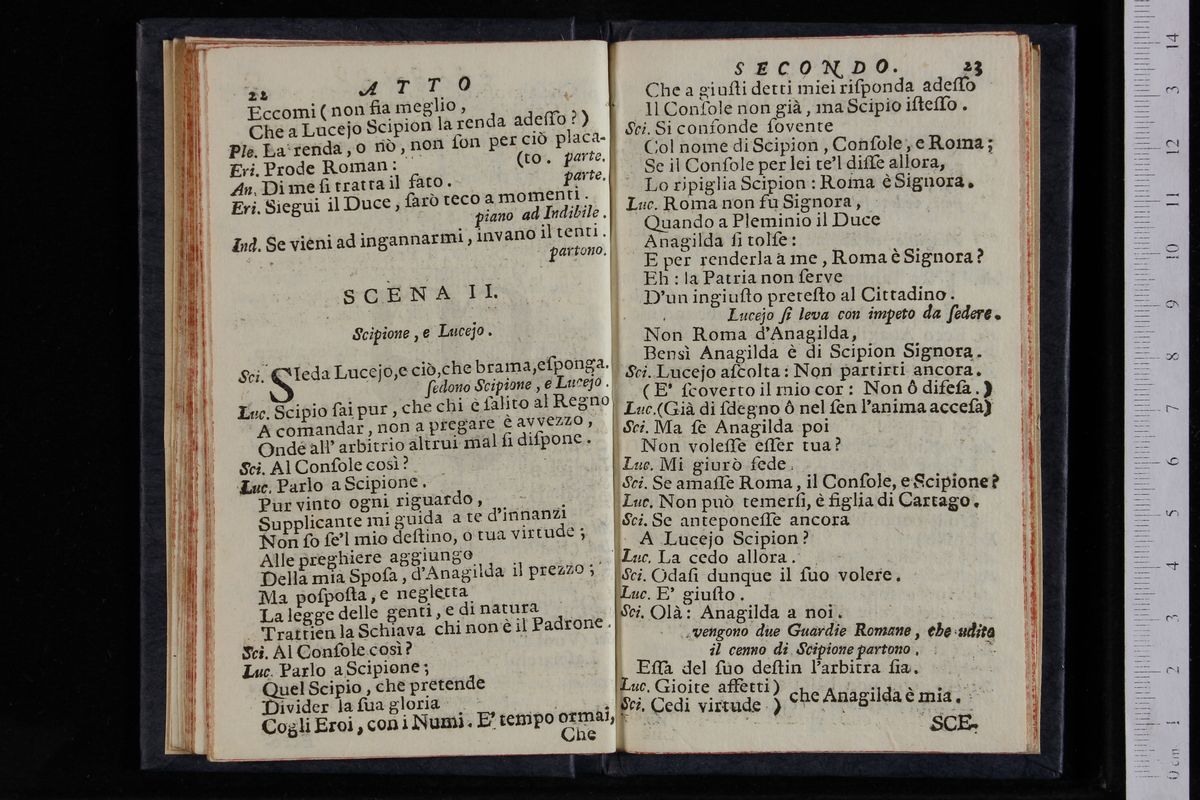 22 ATTO
Eccomi ( non fia meglio ,
Che a Lucejo Scipion la renda adeſſo ? )
Ple. La renda , o nò , non ſon per ciò placa-
Eri. Prode Roman : (to . parte.
An. Di me ſi tratta il fato . parte.
Eri. Siegui il Duce , ſarò teco a momenti .
piano ad Indibile .
Ind. Se vieni ad ingannarmi , invano il tenti .
partono.
SCENA II.
Scipione , e Lucejo .
Sci. SIeda Lucejo,e ciò,che brama,eſponga.
ſedono Scipione , e Lucejo .
Luc. Scipio ſai pur , che chi è ſalito al Regno
A comandar , non a pregare è avvezzo ,
Onde all' arbitrio altrui mal ſi diſpone .
Sci. Al Conſole così ?
Luc. Parlo a Scipione .
Pur vinto ogni riguardo ,
Supplicante mi guida a te d'innanzi
Non ſo ſe'l mio deſtino, o tua virtude ;
Alle preghiere aggiungo
Della mia Spoſa , d'Anagilda il prezzo ;
Ma poſpoſta , e negletta
La legge delle genti , e di natura
Trattien la Schiava chi non è il Padrone .
Sci. Al Conſole così ?
Luc. Parlo a Scipione ;
Quel Scipio , che pretende
Divider la ſua gloria
Cogli Eroi , con i Numi . E' tempo ormai,
Che
SECONDO. 23
Che a giuſti detti miei riſponda adeſſo
Il Conſole non già , ma Scipio iſteſſo .
Sci. Si confonde ſovente
Col nome di Scipion , Conſole , e Roma ;
Se il Conſole per lei te'l diſſe allora,
Lo ripiglia Scipion : Roma è Signora .
Luc. Roma non fu Signora ,
Quando a Pleminio il Duce
Anagilda ſi tolſe :
E per renderla à me , Roma è Signora ?
Eh : la Patria non ſerve
D'un ingiuſto preteſto al Cittadino .
Lucejo ſi leva con impeto da ſedere.
Non Roma d'Anagilda,
Bensì Anagilda è di Scipion Signora .
Sci. Lucejo aſcolta : Non partirti ancora .
( E' ſcoverto il mio cor : Non ô difeſa . )
Luc.(Già di ſdegno ô nel ſèn l'anima acceſa)
Sci. Ma ſe Anagilda poi
Non voleſſe eſſer tua ?
Luc. Mi giurò fede .
Sci. Se amaſſe Roma , il Conſole, e Scipione ?
Luc. Non può temerſi, è figlia di Cartago .
Sci. Se anteponeſſe ancora
A Lucejo Scipion ?
Luc. La cedo allora .
Sci. Odaſi dunque il ſuo volere .
Luc. E' giuſto .
Sci. Olà : Anagilda a noi .
vengono due Guardie Romane , che udito
il cenno di Scipione partono .
Eſſa del ſuo deſtin l'arbitra ſia .
Luc. Gioite affetti )
Sci. Cedi virtude ) che Anagilda è mia .
SCE-
0 cm 1 2 3 4 5 6 7 8 9 10 11 12 13 14